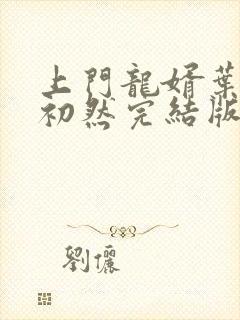 上門龍婿葉
初然完結版
劉儷